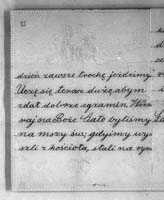 dzień zawsze trochę jeździmy.
Uczę się teraz dużo, abym
zdał dobrze egzamin. Wczo
raj na Boże Ciało byliśmy
na mszy św., gdyśmy wys
szli z kościoła, stali na ryn